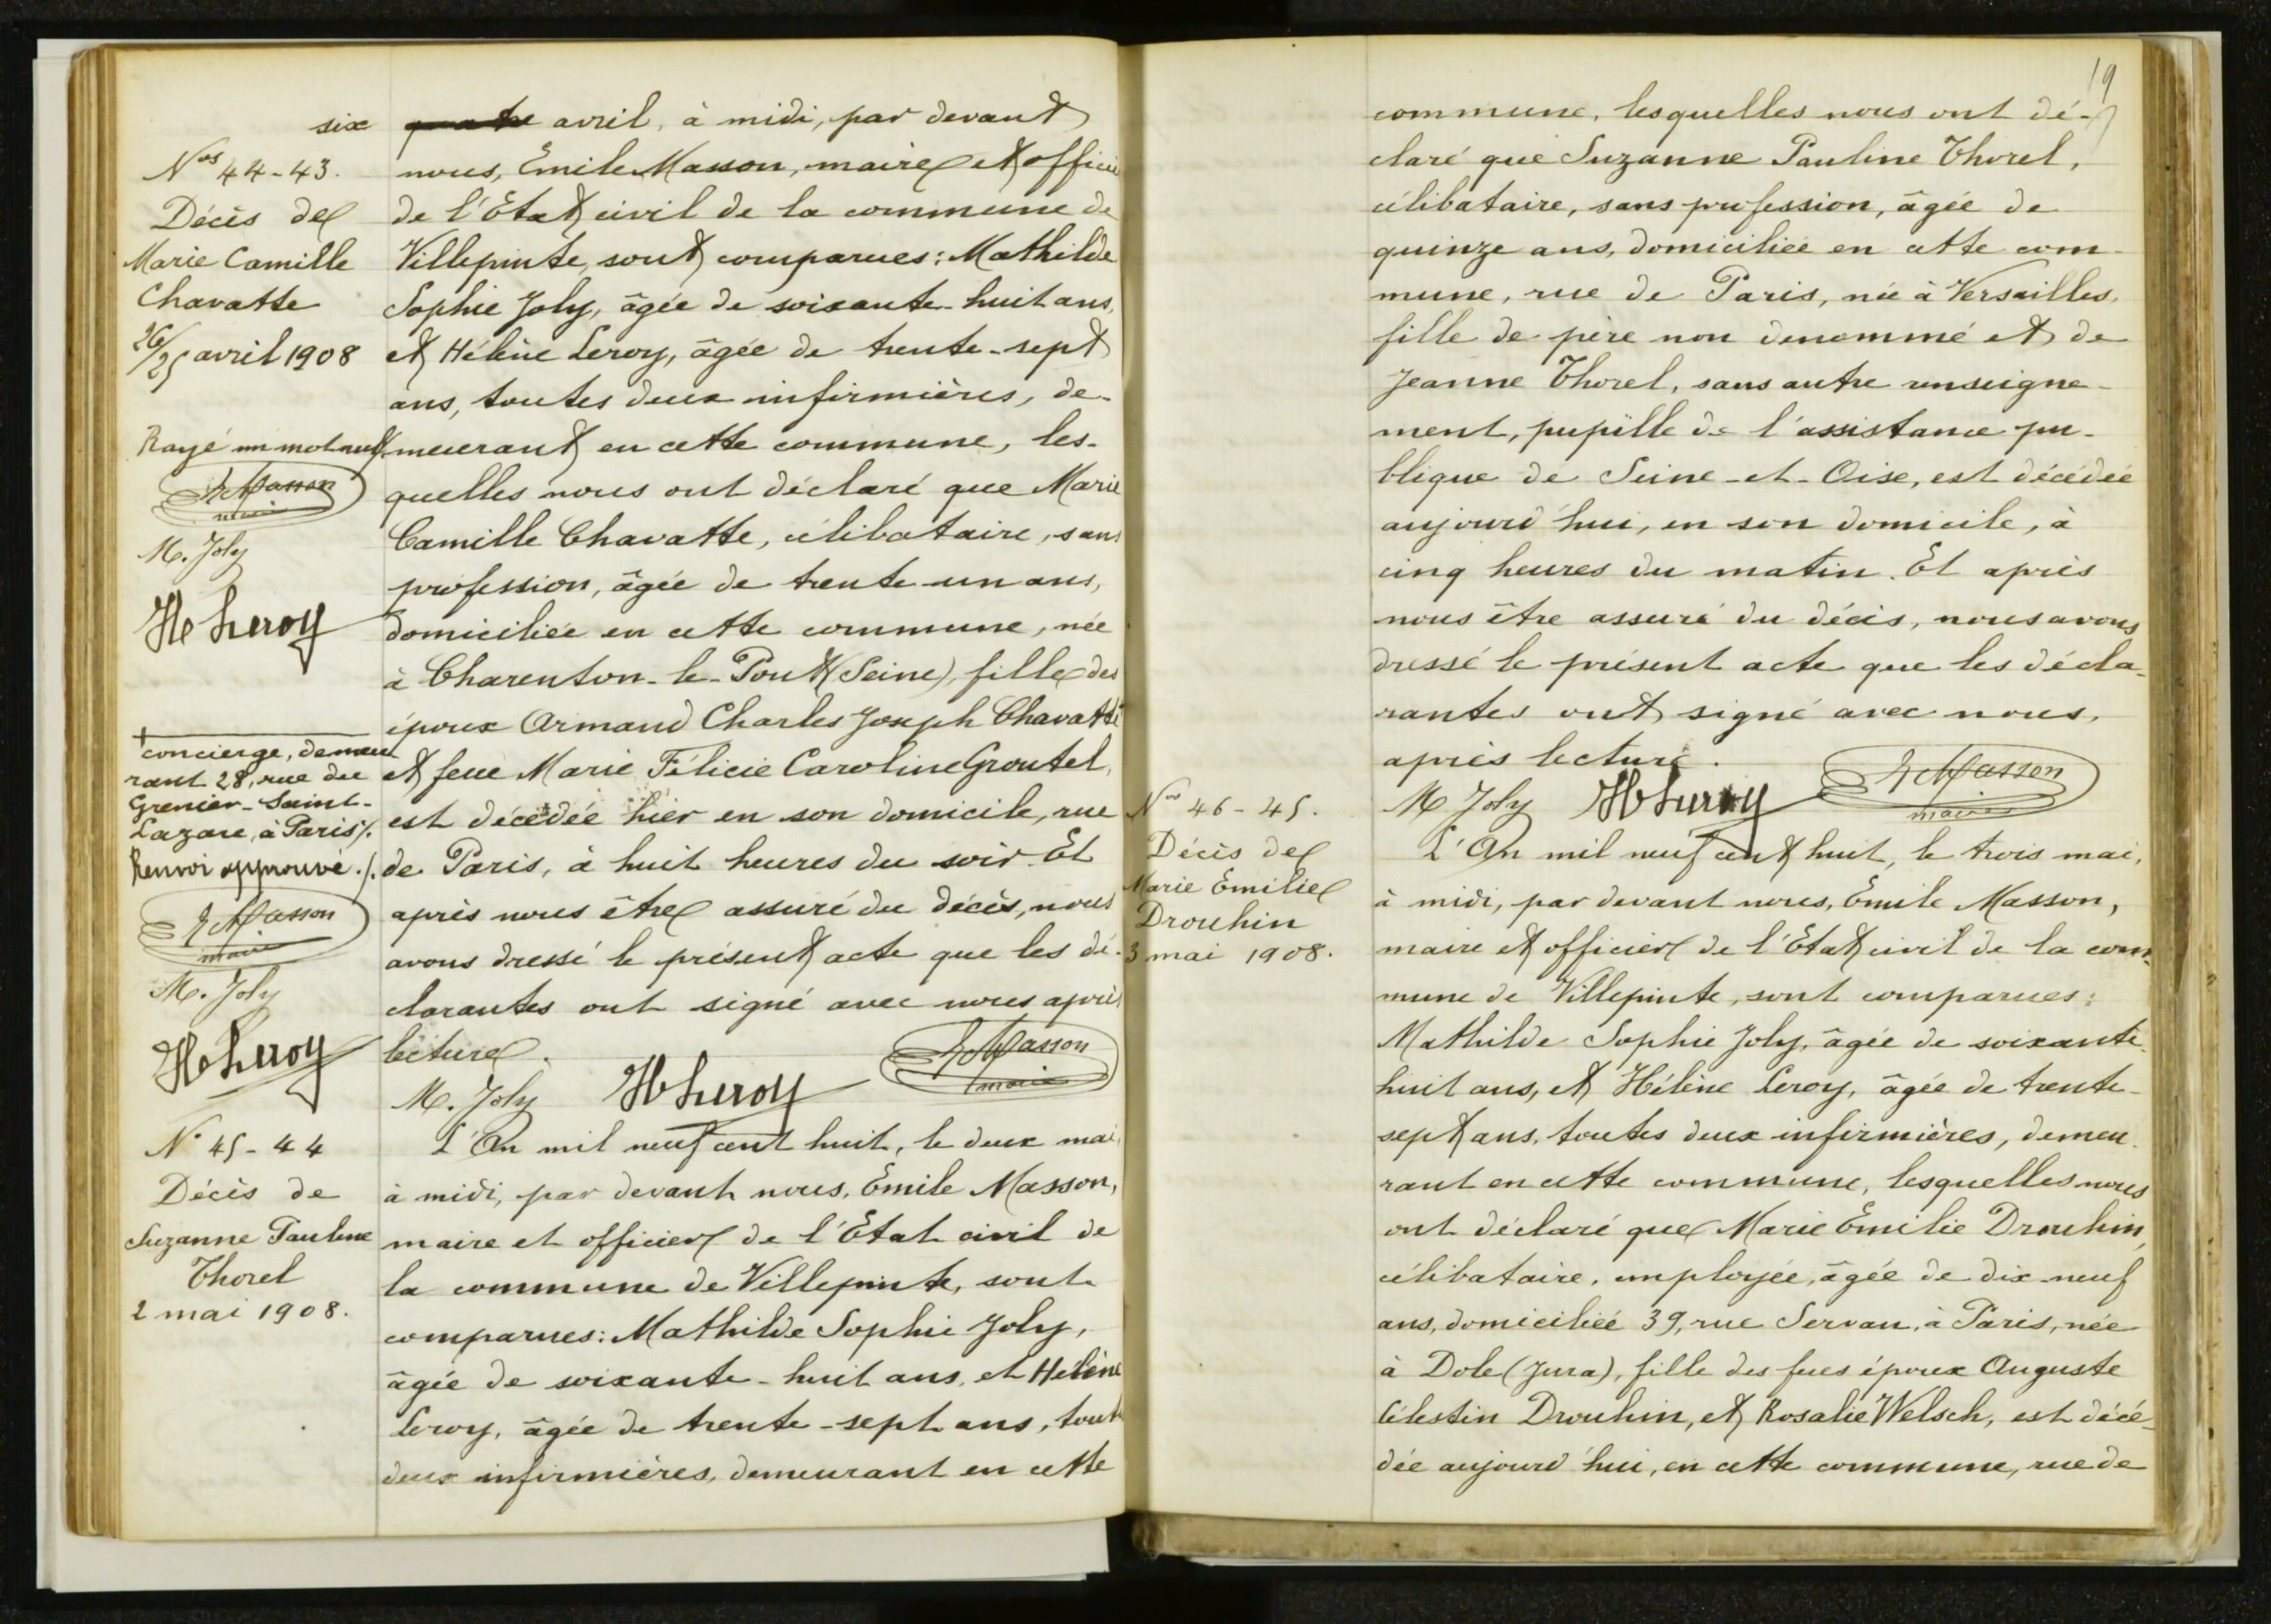 six
Nos 44-43.
Décès de
Marie Camille
Chavatte
26/25 avril 1908
Rayé un mot nul
E Masson
maire
M. Joly
H Leroy
+ concierge, demeu
rant 28, rue du
Grenier-Saint-
Lazare, à Paris /.
Renvoi approuvé ./.
E Masson
maire
M. Joly
H Leroy
N° 45-44
Décès de
Suzanne Pauline
Thorel
2 mai 1908.
quatre avril, à midi, par devant
nous, Emile Masson, maire et officier
de l'Etat civil de la commune de
Villepinte, sont comparues: Mathilde
Sophie Joly, âgée de soixante-huit ans,
et Hélène Leroy, âgée de trente-sept
ans, toutes deux infirmières, de-
meurant en cette commune, les-
quelles nous ont déclaré que Marie
Camille Chavatte, célibataire, sans
profession, âgée de trente-un ans,
domiciliée en cette commune, née
à Charenton-le-Pont (Seine), fille des
époux Armand Charles Joseph Chavatte +
et feue Marie Félicie Caroline Groutel,
est décédée hier en son domicile, rue
de Paris, à huit heures du soir. Et
après nous être assuré du décès, nous
avons dressé le présent acte que les dé-
clarantes ont signé avec nous après
lecture.
M. Joly H Leroy E Masson
maire
L'An mil neuf cent huit, le deux mai,
à midi, par devant nous, Emile Masson,
maire et officier de l'Etat civil de
la commune de Villepinte, sont
comparues: Mathilde Sophie Joly,
âgée de soixante-huit ans, et Hélène
Leroy, âgée de trente-sept ans, toutes
deux infirmières, demeurant en cette
19
commune, lesquelles nous ont dé-
claré que Suzanne Pauline Thorel,
célibataire, sans profession, âgée de
quinze ans, domiciliée en cette com-
mune, rue de Paris, née à Versailles,
fille de père non denommé et de
Jeanne Thorel, sans autre renseigne-
ment, pupille de l'assistance pu-
blique de Seine-et-Oise, est décédée
aujourd'hui, en son domicile, à
cinq heures du matin. Et après
nous être assuré du décès, nous avons
dressé le présent acte que les décla-
rantes ont signé avec nous,
après lecture.
M Joly H Leroy E Masson
maire
Nos 46-45.
Décès de
Marie Emilie
Drouhin
3 mai 1908.
L'An mil neuf cent huit, le trois mai,
à midi, par devant nous, Emile Masson,
maire et officier de l'Etat civil de la com-
mune de Villepinte, sont comparues:
Mathilde Sophie Joly, âgée de soixante-
huit ans, et Hélène Leroy, âgée de trente-
sept ans, toutes deux infirmières, demeu-
rant en cette commune, lesquelles nous
ont déclaré que Marie Emilie Drouhin,
célibataire, employée, âgée de dix-neuf
ans, domiciliée 39, rue Servan, à Paris, née
à Dole (Jura), fille des feus époux Auguste
Célestin Drouhin, et Rosalie Welsch, est décé-
dée aujourd'hui, en cette commune, rue de